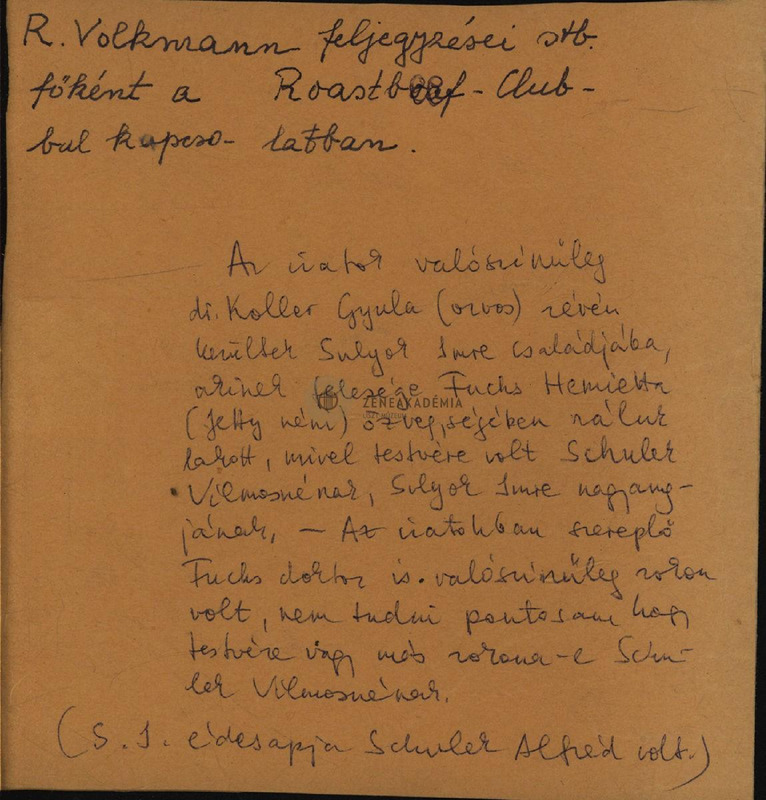 R. Volkmann feljegyzései stb.
főként a Roastbeef-Club-
bal kapcso- latban.
Az iratok valószinűleg
dr. Koller Gyula (orvos) révén
kerültek Sulyok Imre családjába,
akinek felesége Fuchs Henrietta
ZENEAKADÉMIA
(Jetty néni) özvegységében náluk
lakott, mivel testvére volt Schuler
Vilmosnénak, Sulyok Imre nagyany-
jának. — Az iratokban szereplő
Fuchs doktor is valószinűleg rokon
volt, nem tudni pontosan hogy
testvére vagy más rokona-e Schu-
ler Vilmosnénak.
(S. I. édesapja Schuler Alfréd volt.)